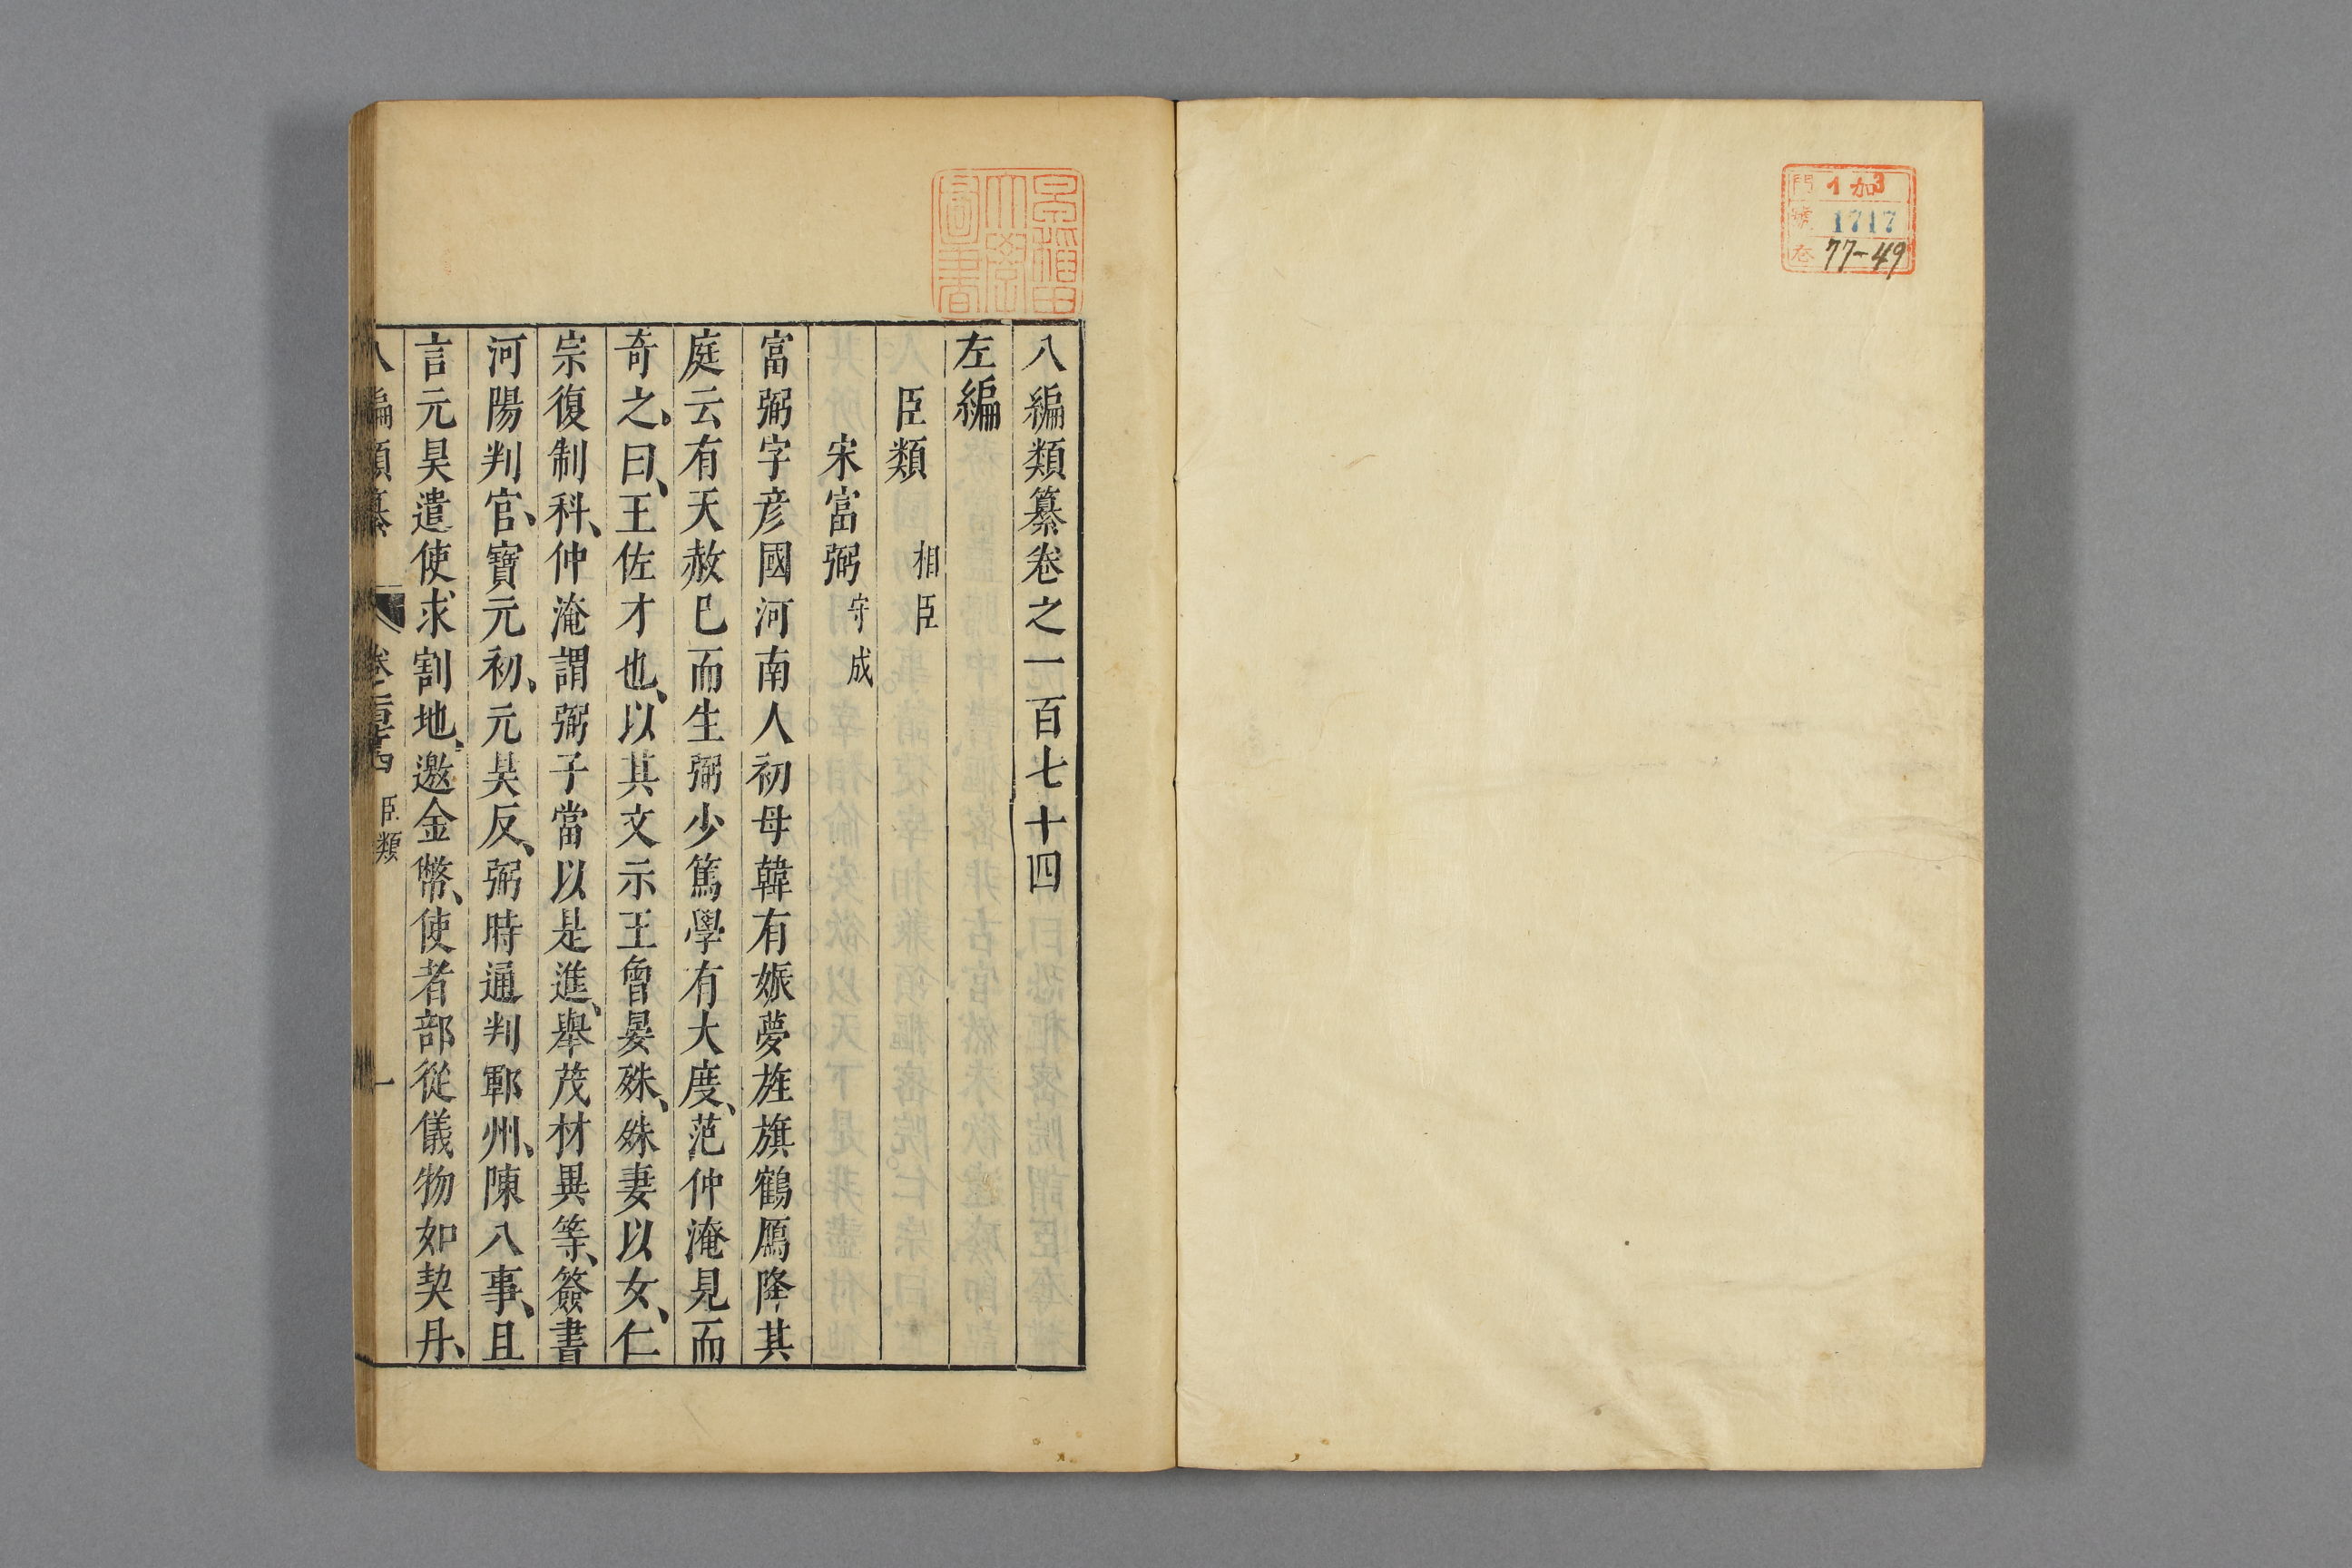 門 1加3
號 1717
巻 77-49
早稲田大學圖書
八編類纂卷之一百七十四
左編
臣類 相臣
宋富弼 守成
富弼字彦國河南人初母韓有娠夢旌旗鶴鴈降其
庭云有天赦已而生弼少篤學有大度、范仲淹見而
奇之、曰、王佐才也、以其文示王曾晏殊、殊妻以女、仁
宗復制科、仲淹謂弼子當以是進、舉茂材異等、簽書
河陽判官、寶元初、元昊反、弼時通判鄆州、陳八事、且
言元昊遣使求割地、邀金幣、使者部從儀物如契丹、
八編類纂 卷一百七十四 臣類 一